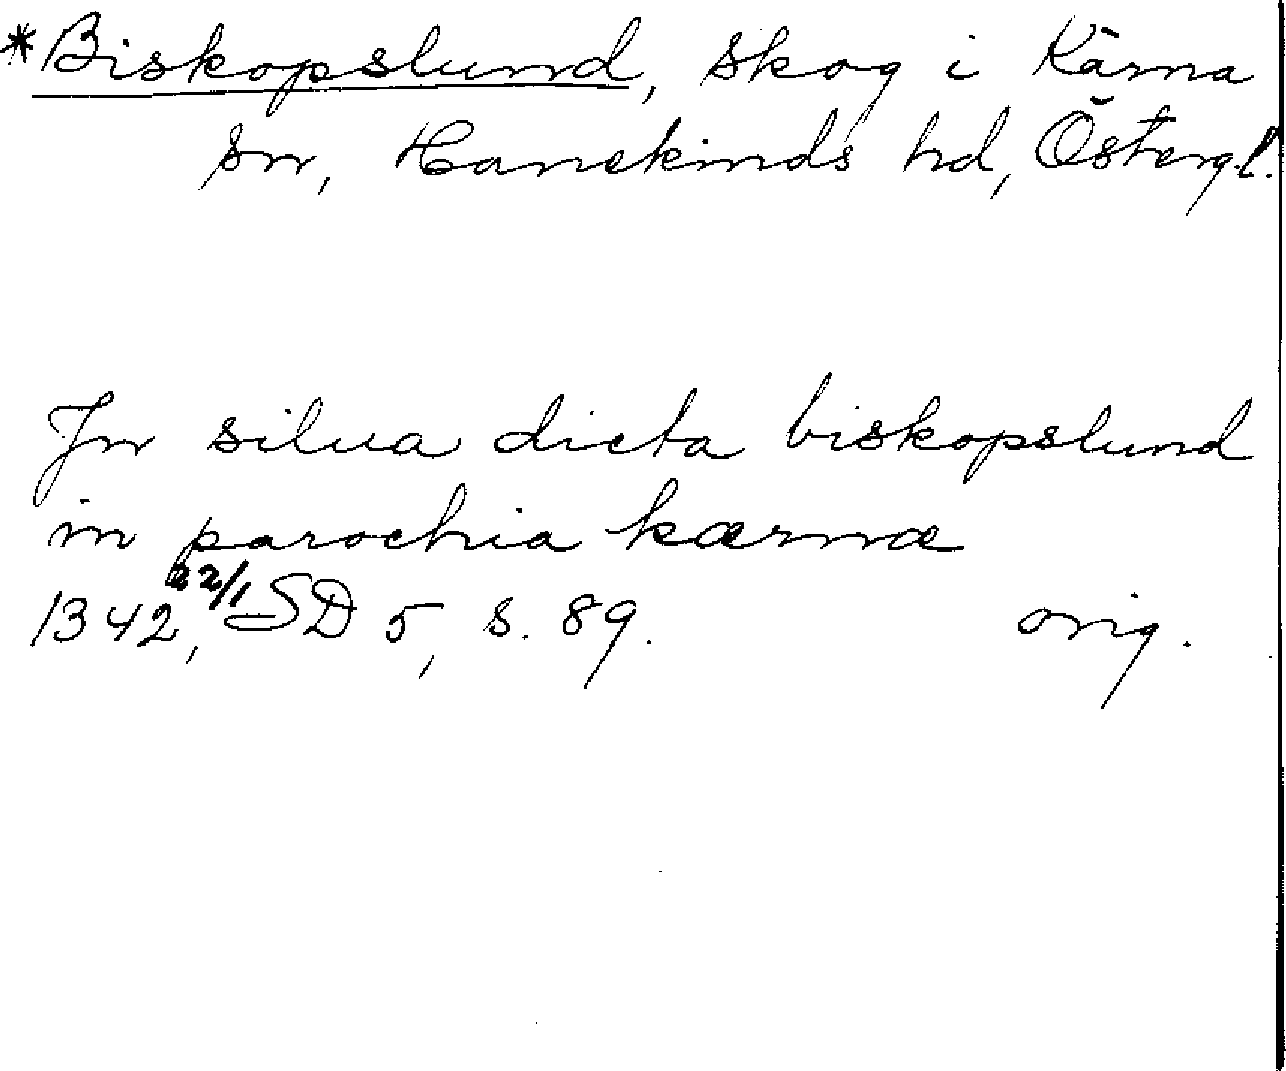 *Biskopslund, skog i Kärna
sn, Hanekinds hd, Östergl.
Jn silua dicta biskopslund
in parochia kærnæ
1342 22/1, SD 5, s. 89. orig.